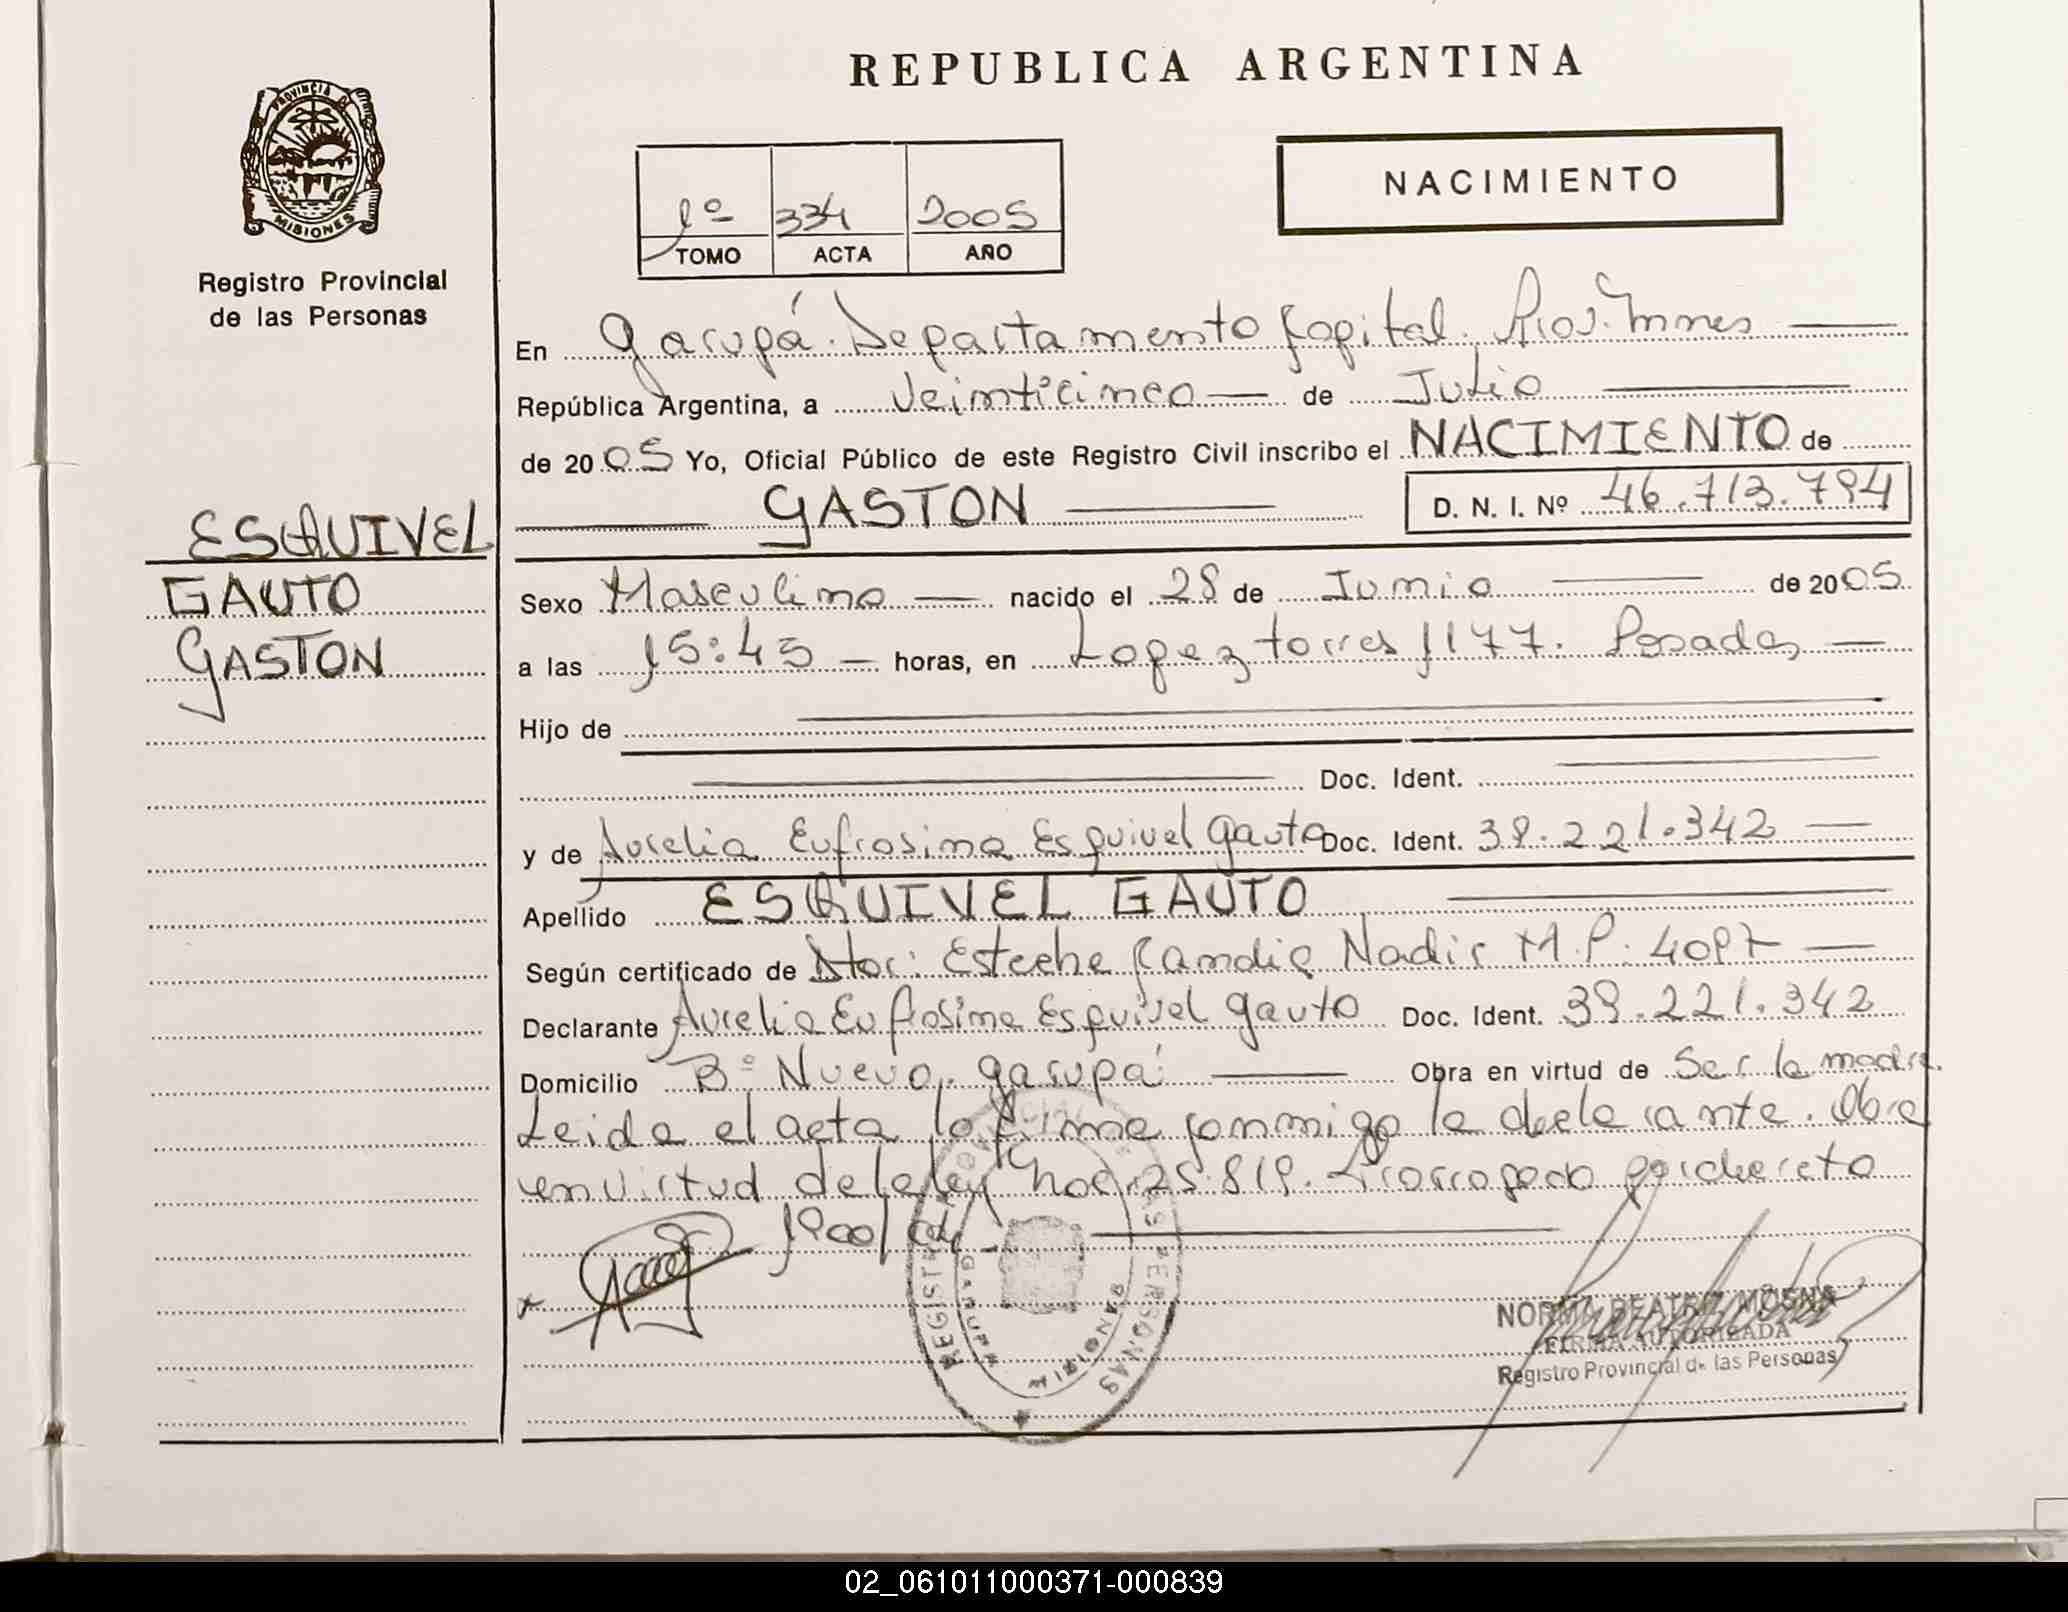 REPUBLICA ARGENTINA
PROVINCIA DE
MISIONES
Registro Provincial
de las Personas
1º 334 2005
TOMO ACTA AÑO
NACIMIENTO
En Garupá. Departamento Capital. Prov. Mnes
República Argentina, a Veinticinco de Julio
de 2005 Yo, Oficial Público de este Registro Civil inscribo el NACIMIENTO de
GASTON D. N. I. Nº 46.713.794
ESQUIVEL
GAUTO
GASTON
Sexo Masculino nacido el 28 de Junio de 2005.
a las 15:45 horas, en Lopez torres 1177. Posadas
Hijo de
Doc. Ident.
y de Aurelia Eufrosina Esquivel Gauto Doc. Ident. 39.221.342
Apellido ESQUIVEL GAUTO
Según certificado de Dtor: Esteche Candia Nadir M.P: 4097
Declarante Aurelia Eufrosina Esquivel Gauto Doc. Ident. 39.221.342
Domicilio Bº Nuevo. Garupá Obra en virtud de Ser la madre.
Leida el acta la firma conmigo la declarante. Obra
en virtud de la ley nac. 25.819. Prorrogado por decreto
1900/04
REGISTRO PROVINCIAL DE LAS PERSONAS
GARUPA MISIONES
NORMA BEATRIZ
FIRMA AUTORIZADA
Registro Provincial de las Personas
02_061011000371-000839